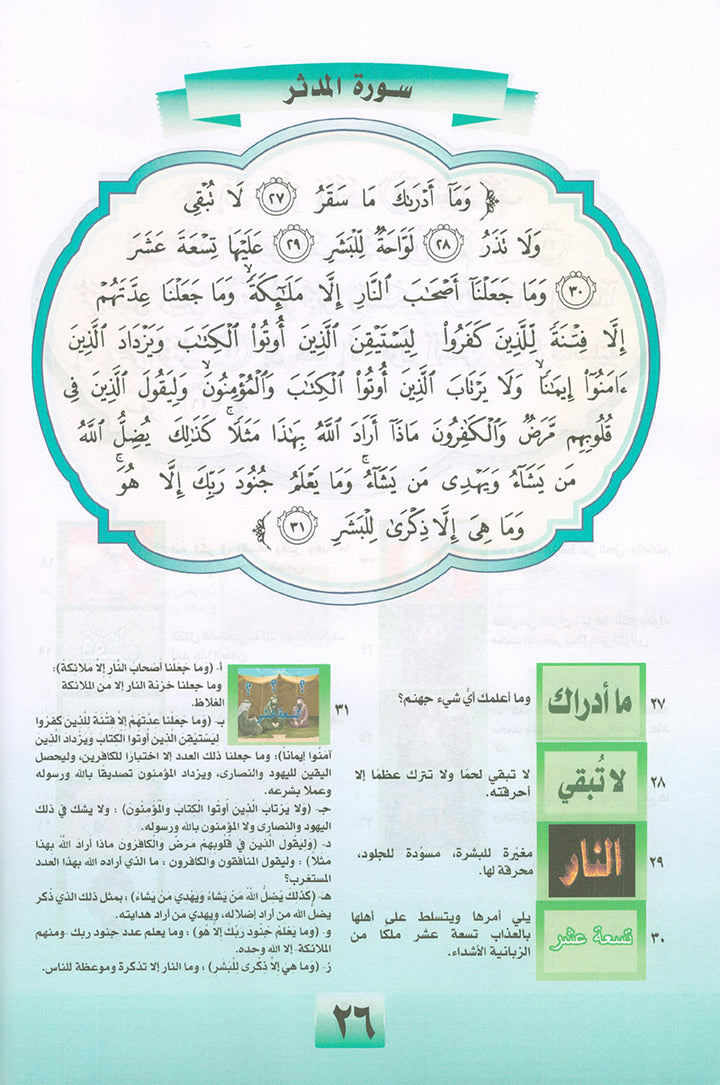 سورة المدثر
﴿ وَمَآ أَدْرَىٰكَ مَا سَقَرُ ٢٧ لَا تُبْقِى
وَلَا تَذَرُ ٢٨ لَوَّاحَةٌ لِّلْبَشَرِ ٢٩ عَلَيْهَا تِسْعَةَ عَشَرَ
٣٠ وَمَا جَعَلْنَآ أَصْحَٰبَ ٱلنَّارِ إِلَّا مَلَٰٓئِكَةً ۙ وَمَا جَعَلْنَا عِدَّتَهُمْ
إِلَّا فِتْنَةً لِّلَّذِينَ كَفَرُوا۟ لِيَسْتَيْقِنَ ٱلَّذِينَ أُوتُوا۟ ٱلْكِتَٰبَ وَيَزْدَادَ ٱلَّذِينَ
ءَامَنُوٓا۟ إِيمَٰنًا ۙ وَلَا يَرْتَابَ ٱلَّذِينَ أُوتُوا۟ ٱلْكِتَٰبَ وَٱلْمُؤْمِنُونَ ۙ وَلِيَقُولَ ٱلَّذِينَ فِى
قُلُوبِهِم مَّرَضٌ وَٱلْكَٰفِرُونَ مَاذَآ أَرَادَ ٱللَّهُ بِهَٰذَا مَثَلًا ۚ كَذَٰلِكَ يُضِلُّ ٱللَّهُ
مَن يَشَآءُ وَيَهْدِى مَن يَشَآءُ ۚ وَمَا يَعْلَمُ جُنُودَ رَبِّكَ إِلَّا هُوَ ۚ
وَمَا هِىَ إِلَّا ذِكْرَىٰ لِلْبَشَرِ ٣١ ﴾
٢٧ ما أدراك وما أعلمك أيُّ شيء جهنم؟
٢٨ لا تُبقي لا تبقي لحمًا ولا تترك عظمًا إلا
أحرقته.
٢٩ النار مغيّرة للبشرة، مسوّدة للجلود،
محرقة لها.
٣٠ تسعة عشر يلي أمرها ويتسلط على أهلها
بالعذاب تسعة عشر ملكًا من
الزبانية الأشداء.
٣١ ؟ ؟ تسعة عشر
أ- (وما جعلنا أصحابَ النَّار إلاَّ مَلائكةً):
وما جعلنا خزنة النار إلا من الملائكة
الغلاظ.
ب- (وَما جَعَلْنا عدَّتَهُمْ إلاَّ فتْنَةً للَّذينَ كَفَرُوا
ليَسْتَيْقنَ الَّذينَ أُوتُوا الْكتابَ وَيَزْدادَ الَّذينَ
آمَنُوا إيماناً): وما جعلنا ذلك العدد إلا اختبارًا للكافرين، وليحصل
اليقين لليهود والنصارى، ويزداد المؤمنون تصديقًا بالله ورسوله
وعملاً بشرعه.
جـ- (وَلا يَرتابَ الَّذينَ أُوتوا الكتابَ والمؤمنُونَ) : ولا يشك في ذلك
اليهود والنصارى ولا المؤمنون بالله ورسوله.
د- (وليقُولَ الَّذينَ في قُلُوبهمْ مَرَضٌ وَالكافرُونَ ماذا أرادَ اللهُ بهذا
مثلاً) : وليقول المنافقون والكافرون : ما الذي أراده الله بهذا العدد
المستغرب؟
هـ- (كَذَلكَ يُضلُّ اللهُ مَنْ يَشاءُ وَيَهْدي مَنْ يَشاءُ) ، بمثل ذلك الذي ذكر
يضل الله من أراد إضلاله، ويهدي من أراد هدايته.
و- (وَما يَعْلمُ جُنُودَ رَبِّكَ إلاَّ هُوَ) : وما يعلم عدد جنود ربك -ومنهم
الملائكة- إلا الله وحده.
ز- (وَما هيَ إلاَّ ذكْرى للْبَشر) : وما النار إلا تذكرة وموعظة للناس.
٢٦